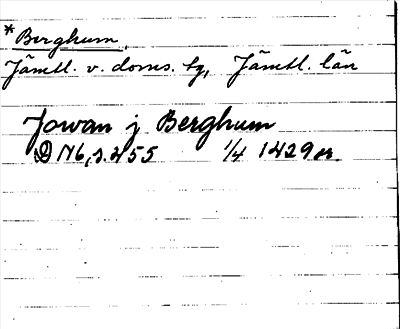 *Berghum,
Jämtl. v. doms. tg, Jämtl. län
Jowan j Berghum
D N6, s. 255 1/4 1429 or.